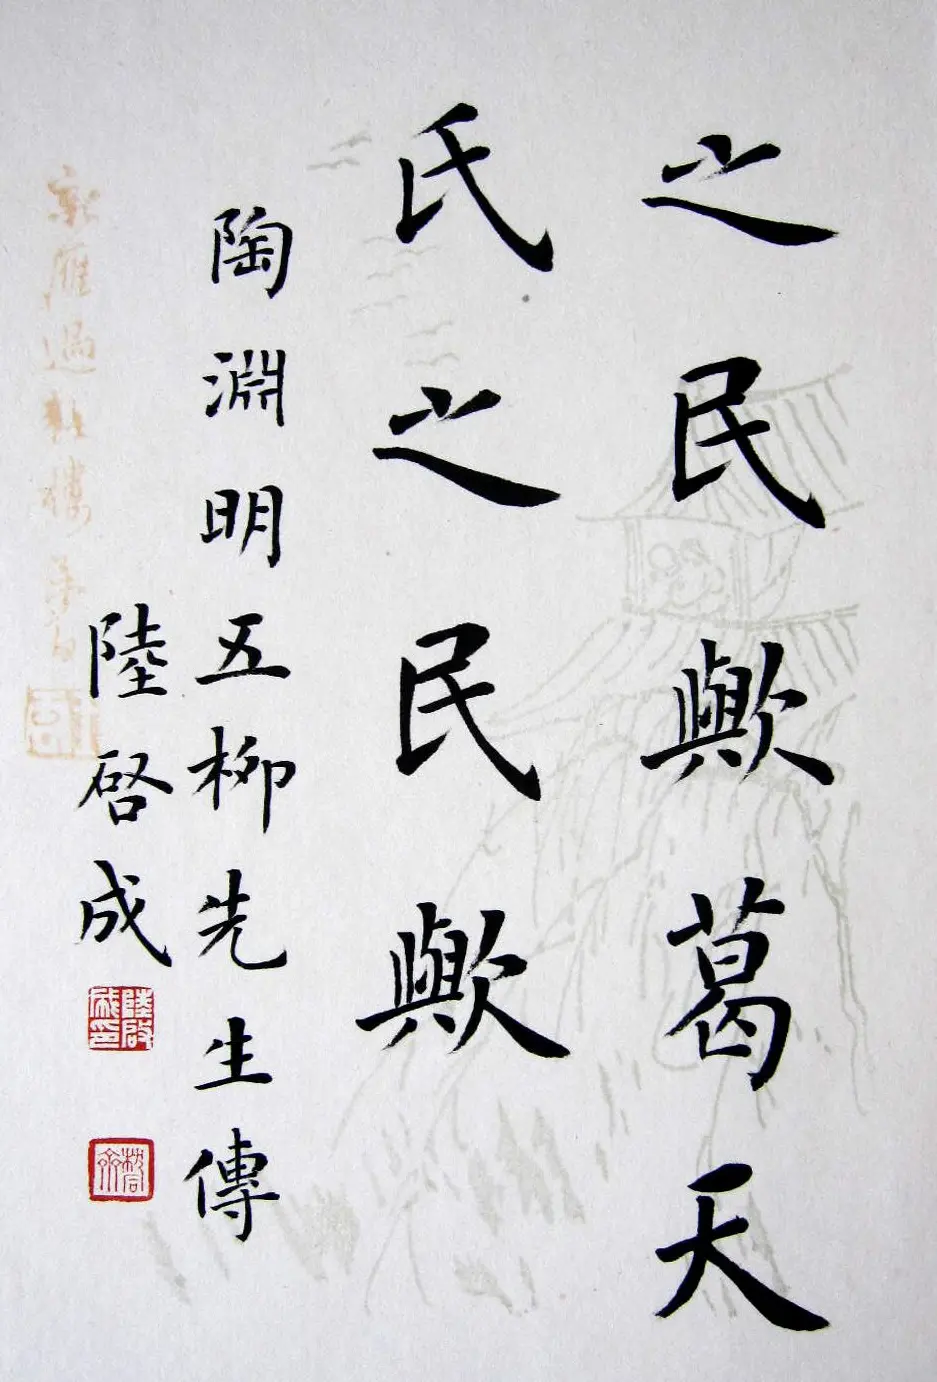 之民歟葛天
氏之民歟
陶淵明五柳先生傳
陸啓成
陸啓成印